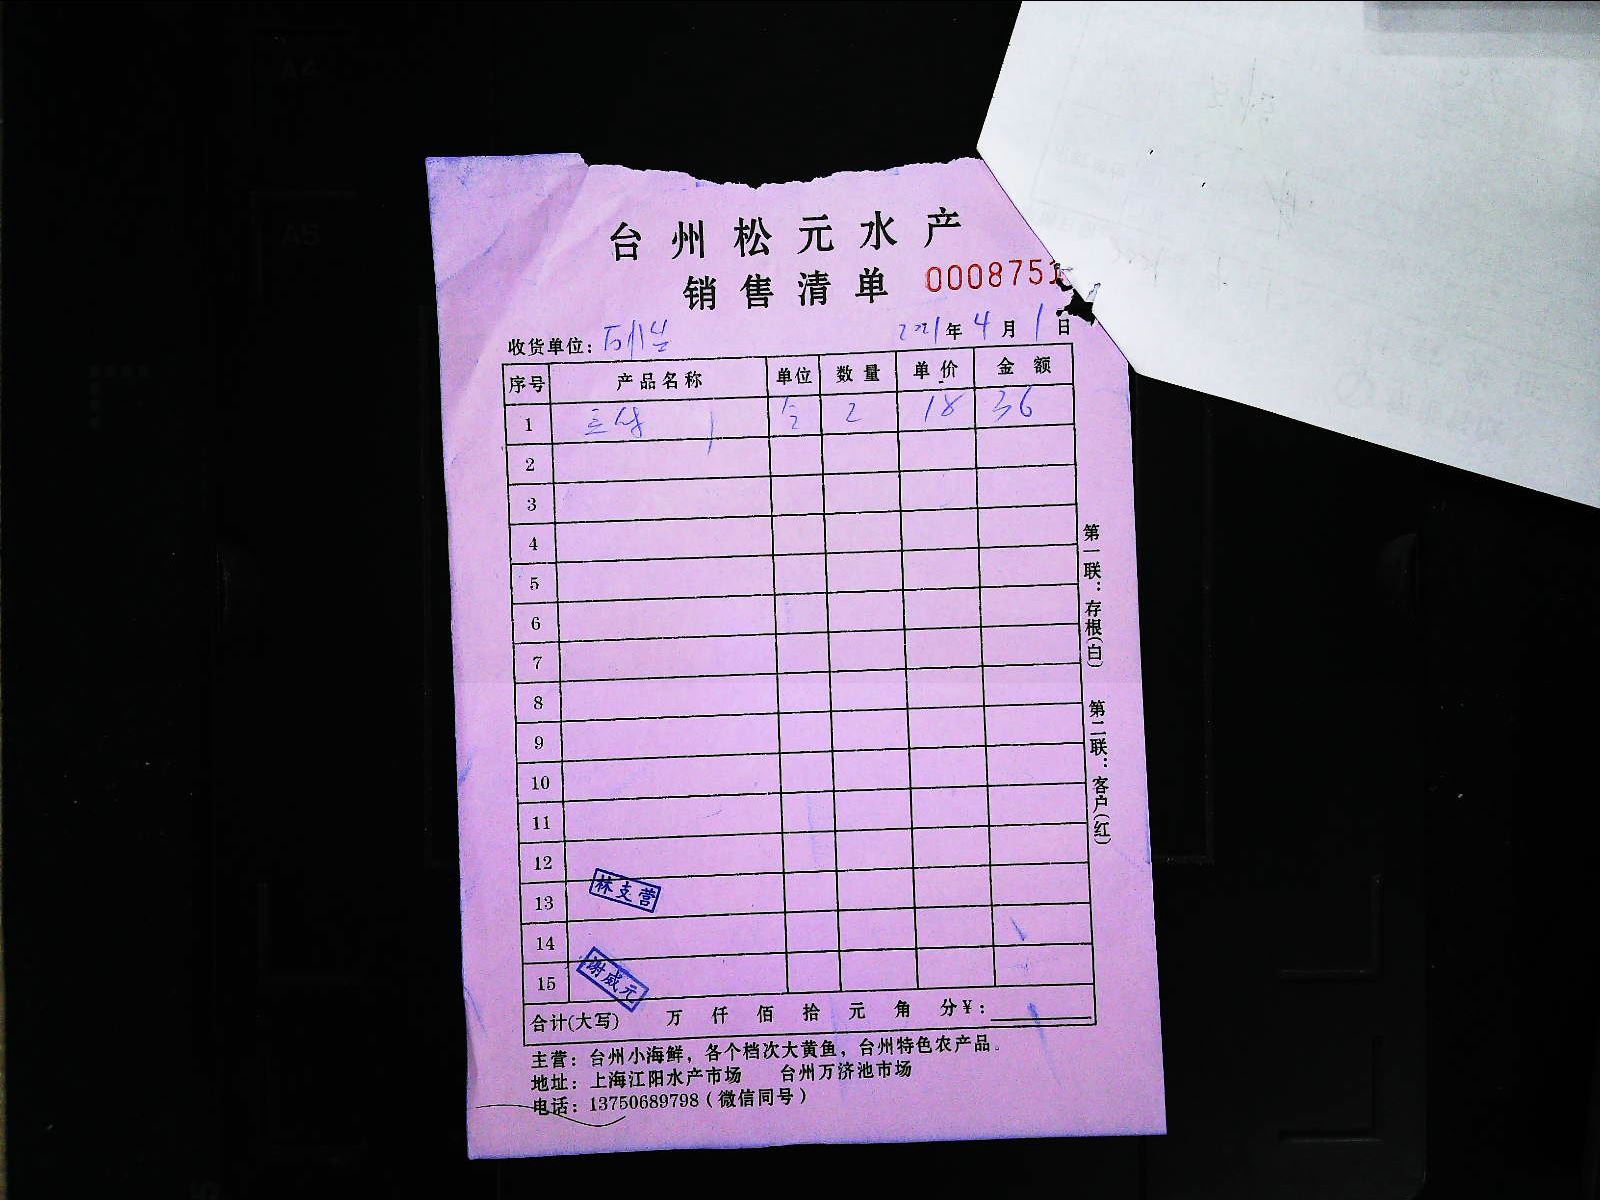 台州松元水产
销售清单 000875
收货单位： 2021年4月1日
序号 产品名称 单位 数量 单价 金额
1 2 18 36
2
3
4
5
6
7
8
9
10
11
12
13 林支营
14
15 谢威元
合计(大写) 万 仟 佰 拾 元 角 分￥：
主营：台州小海鲜，各个档次大黄鱼，台州特色农产品。
地址：上海江阳水产市场 台州万济池市场
电话：13750689798（微信同号）
第一联：存根(白)
第二联：客户(红)
A5